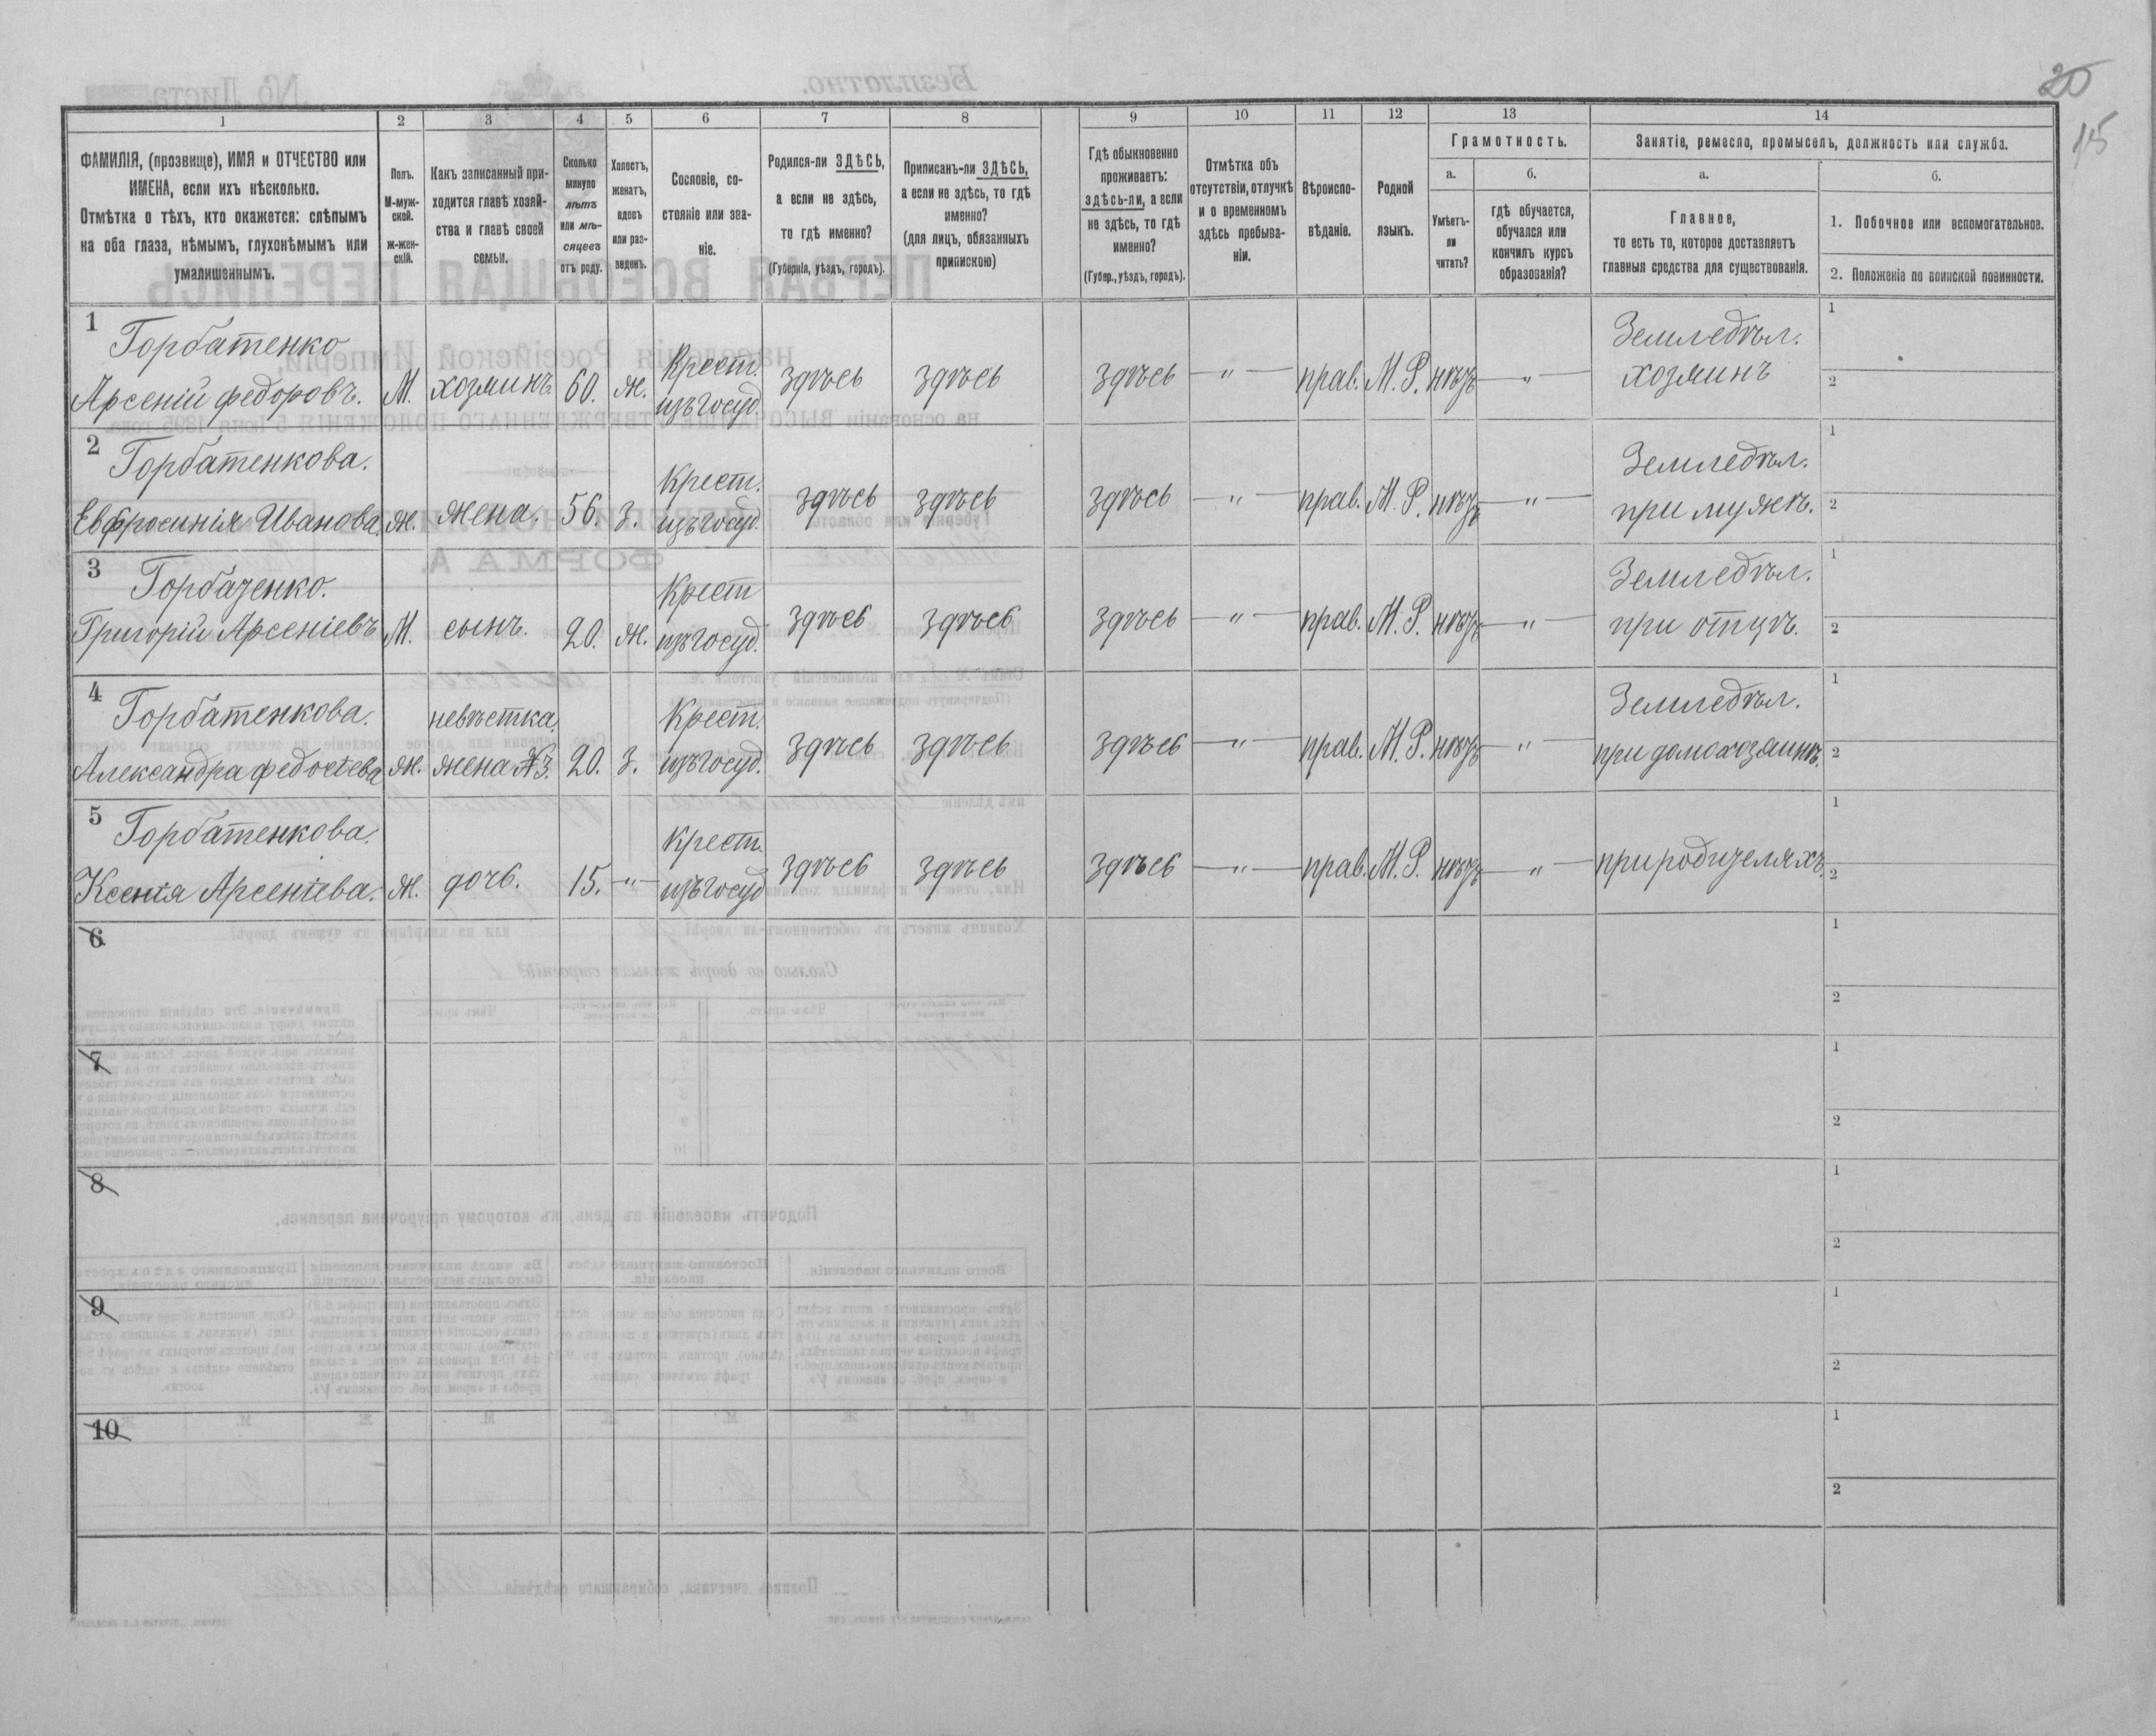 20
15
1 2 3 4 5 6 7 8 9 10 11 12 13 14
ФАМИЛІЯ, (прозвище), ИМЯ и ОТЧЕСТВО или
ИМЕНА, если ихъ нѣсколько.
Отмѣтка о тѣхъ, кто окажется: слѣпымъ
на оба глаза, нѣмымъ, глухонѣмымъ или
умалишеннымъ.
Полъ.
М-муж-
ской.
ж-жен-
скій.
Какъ записанный при-
ходится главѣ хозяй-
ства и главѣ своей
семьи.
Сколько
минуло
лѣтъ
или мѣ-
сяцевъ
отъ роду.
Холостъ,
женатъ,
вдовъ
или раз-
веденъ.
Сословіе, со-
стояніе или зва-
ніе.
Родился-ли ЗДѢСЬ,
а если не здѣсь,
то гдѣ именно?
(Губернія, уѣздъ, городъ).
Приписанъ-ли ЗДѢСЬ,
а если не здѣсь, то гдѣ
именно?
(для лицъ, обязанныхъ
припискою)
Гдѣ обыкновенно
проживаетъ:
здѣсь-ли, а если
не здѣсь, то гдѣ
именно?
(Губер., уѣздъ, городъ).
Отмѣтка объ
отсутствіи, отлучкѣ
и о временномъ
здѣсь пребыва-
ніи.
Вѣроиспо-
вѣданіе.
Родной
языкъ.
Грамотность.
а.
Умѣетъ-
ли
читать?
б.
гдѣ обучается,
обучался или
кончилъ курсъ
образованія?
Занятіе, ремесло, промыселъ, должность или служба.
а.
Главное,
то есть то, которое доставляетъ
главныя средства для существованія.
б.
1. Побочное или вспомогательное.
2. Положеніе по воинской повинности.
1 Горбатенко Крест. Земледѣл. 1
Арсеній Федоровъ. М. хозяинъ. 60. ж. изъ госуд. здѣсь здѣсь здѣсь — " — прав. М. Р. нѣтъ — " — хозяинъ 2
2 Горбатенкова. Крест. Земледѣл. 1
Евфросинія Иванова. ж. жена. 56. з. изъ госуд. здѣсь здѣсь здѣсь — " — прав. М. Р. нѣтъ — " — при мужѣ. 2
3 Горбатенко. Крест Земледѣл. 1
Григорій Арсеніевъ М. сынъ. 20. ж. изъ госуд. здѣсь здѣсь здѣсь — " — прав. М. Р. нѣтъ — " — при отцѣ. 2
4 Горбатенкова. невѣстка, Крест. Земледѣл. 1
Александра Федосѣева ж. жена №3. 20. з. изъ госуд. здѣсь здѣсь здѣсь — " — прав. М. Р. нѣтъ — " — при домохозяинѣ. 2
5 Горбатенкова. Крест. 1
Ксенія Арсеніева. ж. дочь. 15. — " — изъ госуд здѣсь здѣсь здѣсь — " — прав. М. Р. нѣтъ — " — при родителяхъ. 2
6 1
2
7 1
2
8 1
2
9 1
2
10 1
2